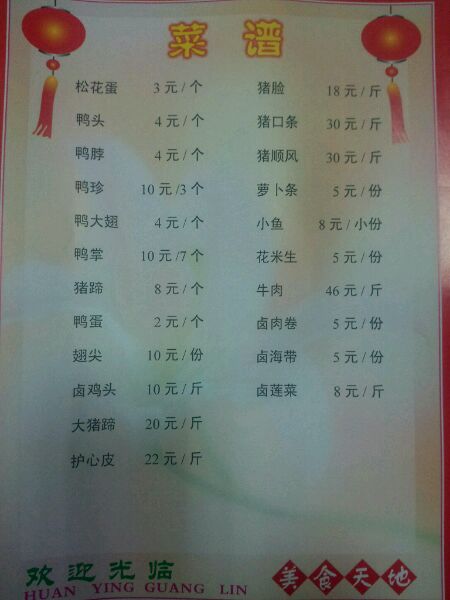 菜谱
松花蛋 3元/个
鸭头 4元/个
鸭脖 4元/个
鸭珍 10元/3个
鸭大翅 4元/个
鸭掌 10元/7个
猪蹄 8元/个
鸭蛋 2元/个
翅尖 10元/份
卤鸡头 10元/斤
大猪蹄 20元/斤
护心皮 22元/斤
猪脸 18元/斤
猪口条 30元/斤
猪顺风 30元/斤
萝卜条 5元/份
小鱼 8元/小份
花米生 5元/份
牛肉 46元/斤
卤肉卷 5元/份
卤海带 5元/份
卤莲菜 8元/斤
欢迎光临
HUAN YING GUANG LIN
美食天地